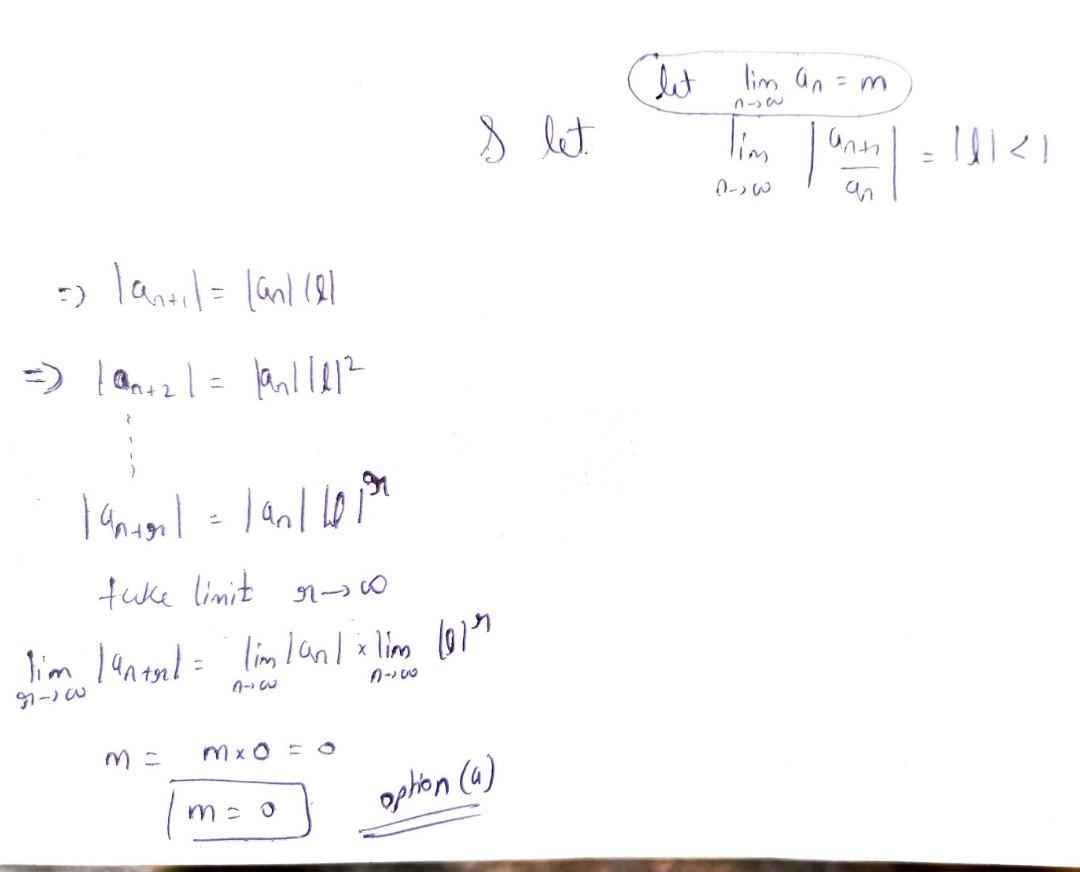 let lim n→∞ an = m
& let lim n→∞ |an+1/an| = |l| < 1
=> |an+1| = |an| |l|
=> |an+2| = |an| |l|²
|an+r| = |an| |l|^r
take limit r→∞
lim r→∞ |an+r| = lim n→∞ |an| × lim n→∞ |l|^r
m = m×0 = 0
m = 0 option (a)